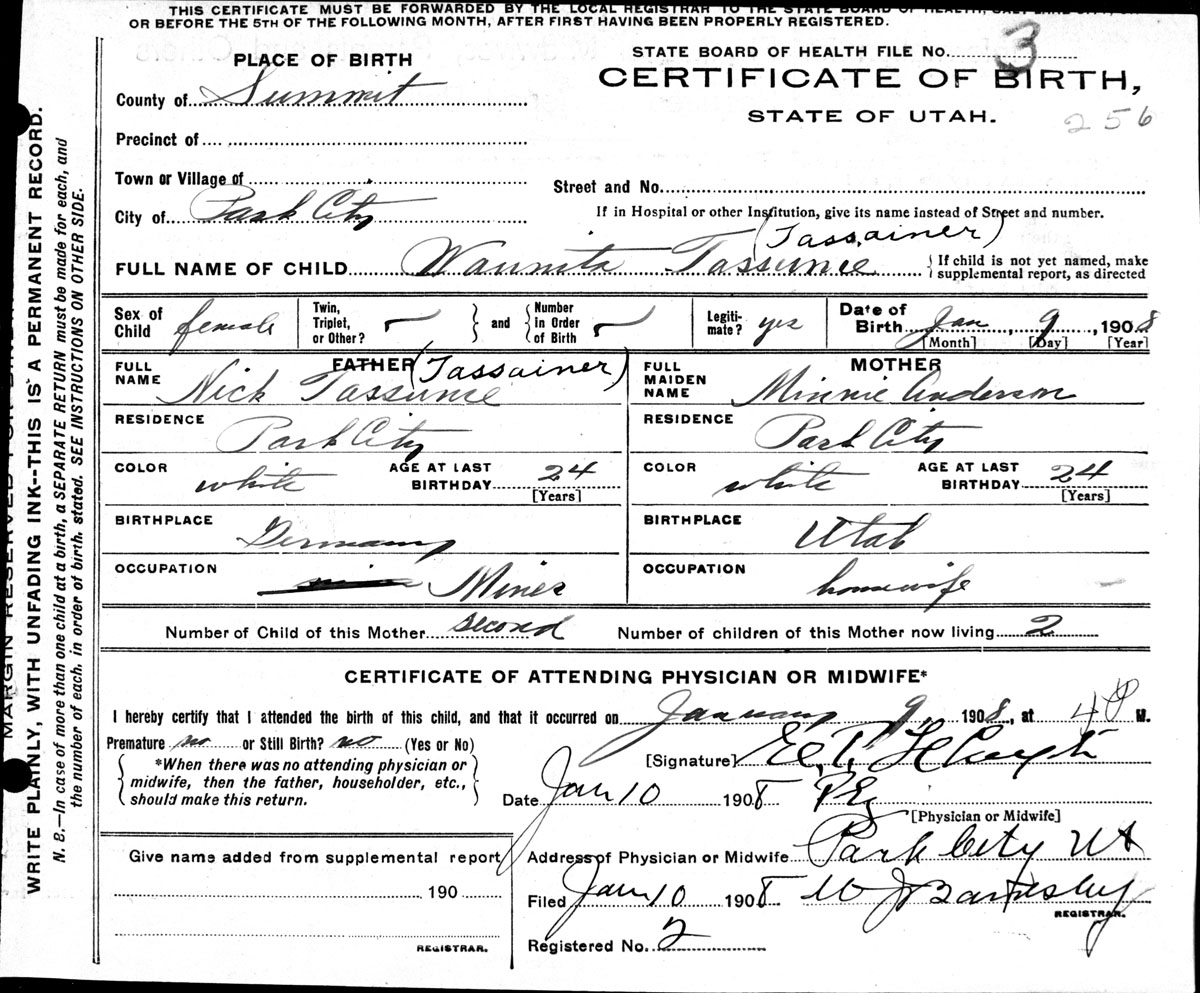 THIS CERTIFICATE MUST BE FORWARDED BY THE LOCAL REGISTRAR TO THE STATE BOARD OF HEALTH,
OR BEFORE THE 5TH OF THE FOLLOWING MONTH, AFTER FIRST HAVING BEEN PROPERLY REGISTERED.
STATE BOARD OF HEALTH FILE No. 3
CERTIFICATE OF BIRTH,
STATE OF UTAH.
256
PLACE OF BIRTH
County of Summit
Precinct of
Town or Village of
City of Park City
Street and No.
If in Hospital or other Institution, give its name instead of Street and number.
(Tassainer)
FULL NAME OF CHILD Waunita Tassunie
{ If child is not yet named, make
supplemental report, as directed
Sex of Child female
Twin, Triplet, or Other? } and { Number in Order of Birth
Legiti-mate? yes
Date of Birth Jan, 9, 1908
[Month] [Day] [Year]
FATHER (Tassainer)
FULL NAME Nick Tassunie
RESIDENCE Park City
COLOR white AGE AT LAST BIRTHDAY 24 [Years]
BIRTHPLACE Germany
OCCUPATION Miner
MOTHER
FULL MAIDEN NAME Minnie Anderson
RESIDENCE Park City
COLOR white AGE AT LAST BIRTHDAY 24 [Years]
BIRTHPLACE Utah
OCCUPATION housewife
Number of Child of this Mother second Number of children of this Mother now living 2
CERTIFICATE OF ATTENDING PHYSICIAN OR MIDWIFE*
I hereby certify that I attended the birth of this child, and that it occurred on January 9, 1908, at 4 P M.
Premature no or Still Birth? no (Yes or No)
{ *When there was no attending physician or
midwife, then the father, householder, etc.,
should make this return. }
[Signature]
Date Jan 10 1908
[Physician or Midwife]
Address of Physician or Midwife Park City Ut
Give name added from supplemental report
190
REGISTRAR.
Filed Jan 10 1908 W J Bardsley
REGISTRAR.
Registered No. 2
MARGIN RESERVED FOR
WRITE PLAINLY, WITH UNFADING INK--THIS IS A PERMANENT RECORD.
N. B.—In case of more than one child at a birth, a SEPARATE RETURN must be made for each, and
the number of each, in order of birth, stated. SEE INSTRUCTIONS ON OTHER SIDE.